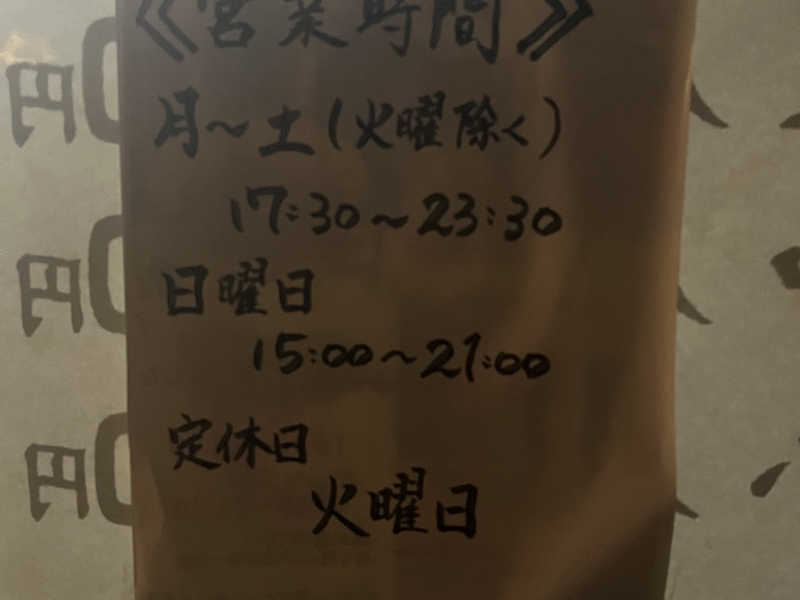 《営業時間》
月～土（火曜除く）
17:30～23:30
日曜日
15:00～21:00
定休日
火曜日
0円
0円
0円